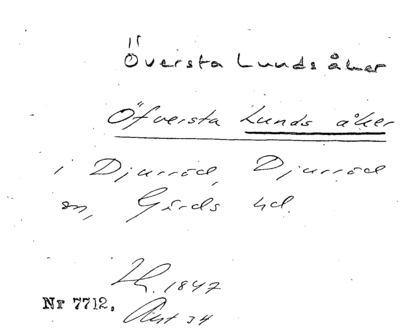 Översta Lunds åker
Öfversta Lunds åker
i Djurröd, Djurröd
sn, Gärds hd.
Lh. 1847
Nr 7712. Akt 34